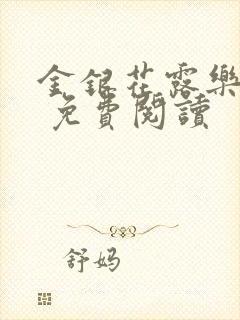 金銀花露樂
免費閱讀
舒妈